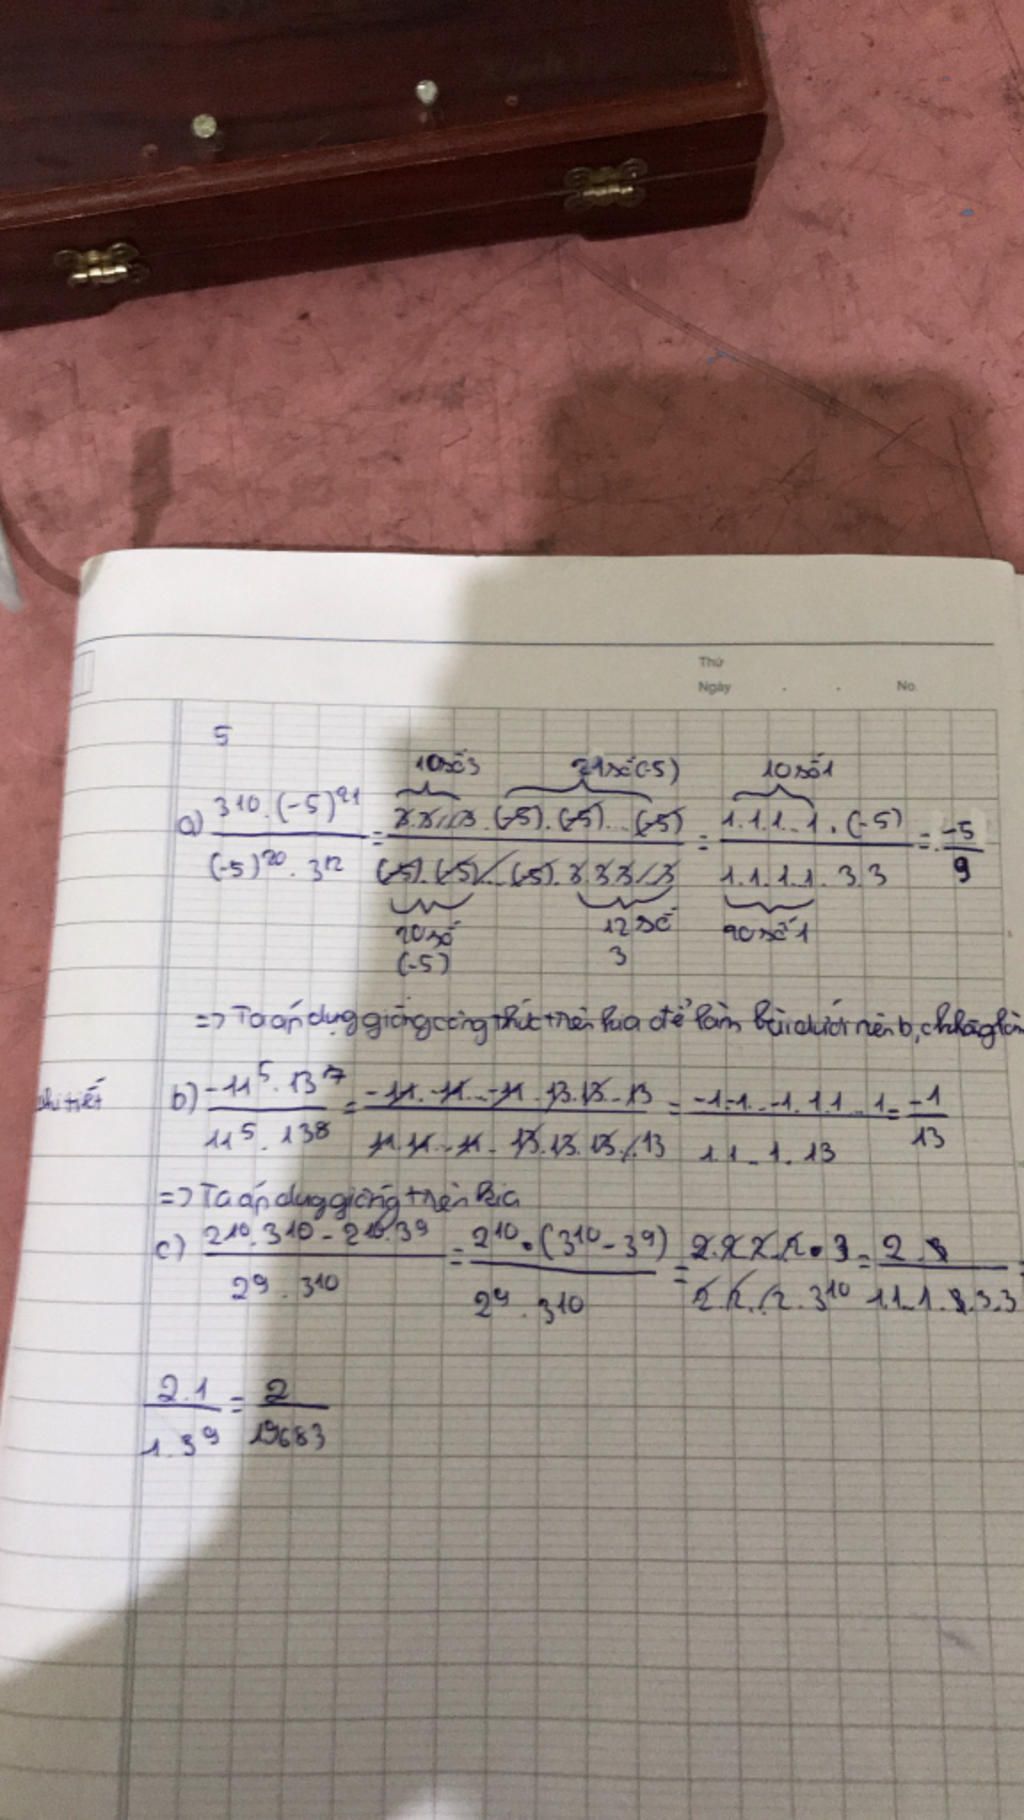 Thứ
Ngày . . No.
5
10số3 21số(-5) 10số1
a) 3^10.(-5)^21 / (-5)^20.3^12 = 3.3...3.(-5).(-5)...(-5) / (-5).(-5)...(-5).3.3.3...3 = 1.1.1...1.(-5) / 1.1.1.1.3.3 = -5/9
20số 12số 20số1
(-5) 3
=> Ta áp dụng giống công thức trên kia để làm bài dưới nên b, c không làm
chi tiết b) -11^5.13^7 / 11^5.13^8 = -11.-11...-11.13.13...13 / 11.11...11.13.13.13...13 = -1.-1...-1.1.1...1 / 1.1...1.13 = -1/13
=> Ta áp dụng giống trên kia
c) 2^10.3^10-2^10.3^9 / 2^9.3^10 = 2^10.(3^10-3^9) / 2^9.3^10 = 2.2.2.2.3 / 2.2...2.3^10 = 2.3 / 1.1...1.3.3.3 =
2.1 / 1.3^9 = 2/19683